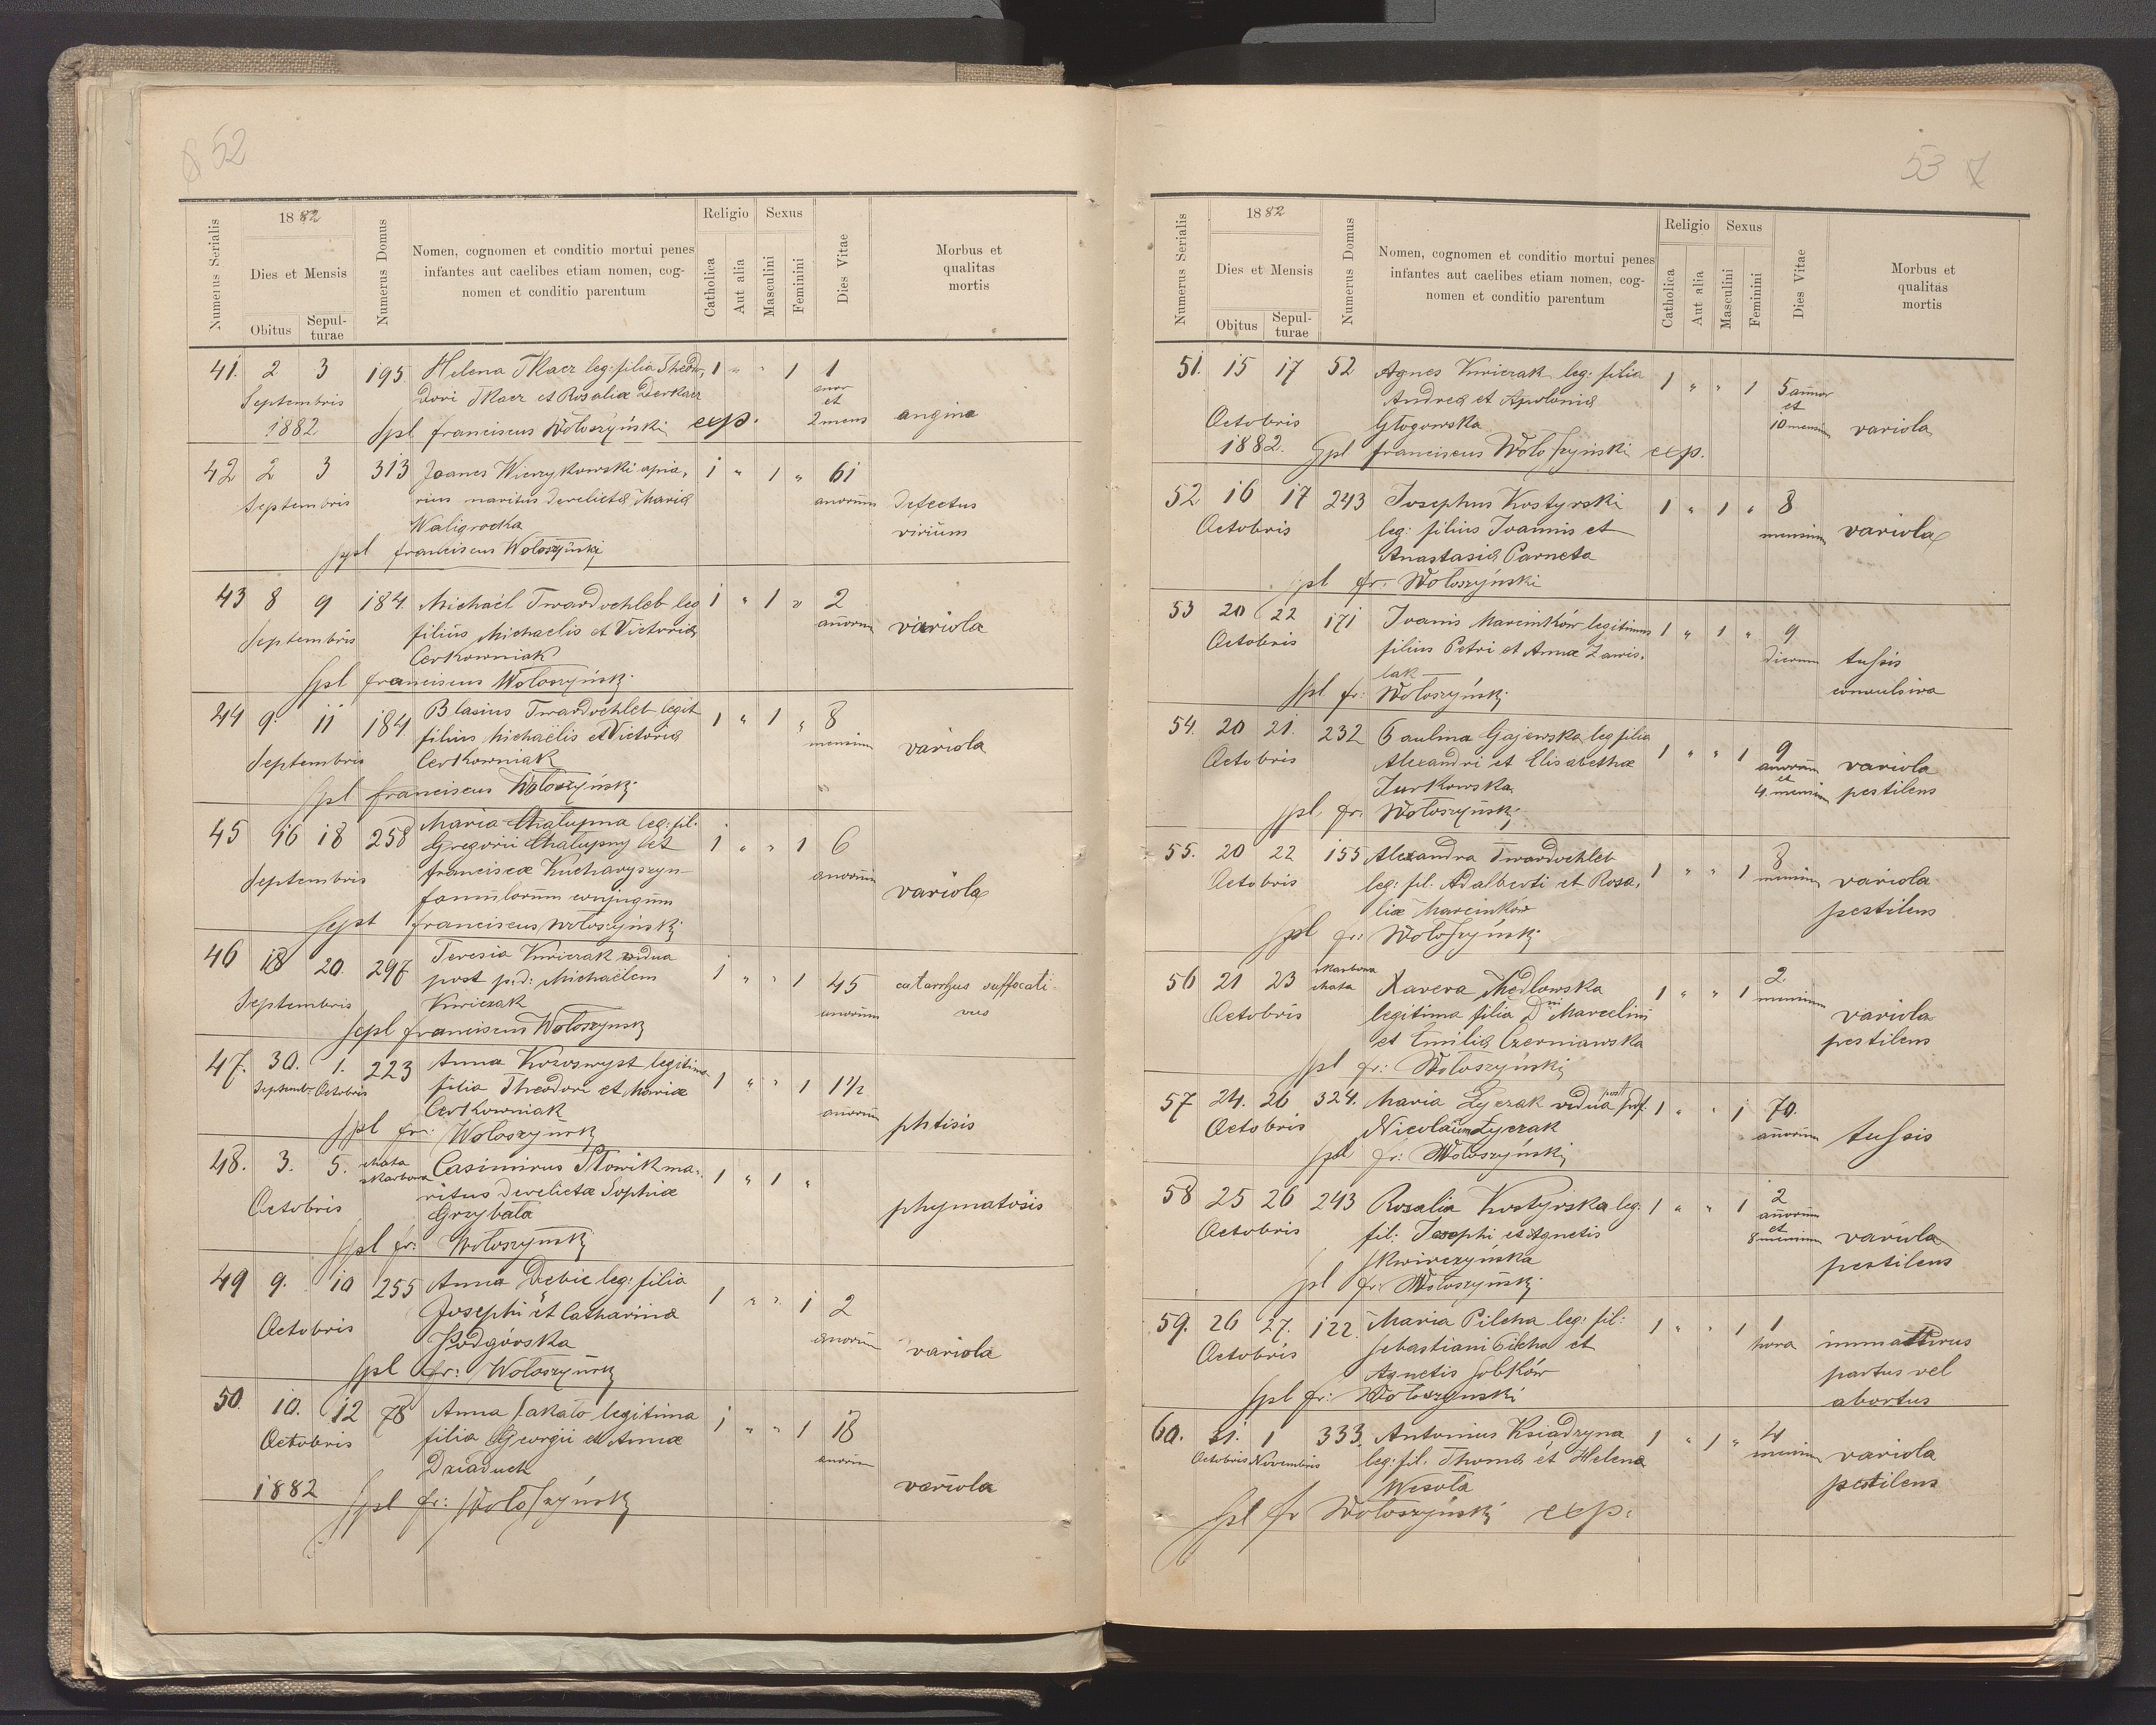 8 52
Numerus Serialis
1882
Dies et Mensis
Obitus
Sepul-
turae
Numerus Domus
Nomen, cognomen et conditio mortui penes
infantes aut caelibes etiam nomen, cog-
nomen et conditio parentum
Religio
Catholica
Aut alia
Sexus
Masculini
Feminini
Dies Vitae
Morbus et
qualitas
mortis
41. 2 3 195 Helena Tkacz leg: filia Theo- 1 " " 1 1
Septembris dori Tkacz et Rosaliæ Derkacz et
1882 Spl franciscus Wołoszyński exp. 2 mens angina
42 2 3 313 Joanes Wierzykowski apia- 1 " 1 " 61
Septembris rius maritus derelicta Maria anorum defectus
Waligrocka virium
spl franciscus Wołoszyński
43 8 9 184. Michaël Twardochleb leg 1 " 1 " 2
Septembris filius Michaelis et Victoria anorum variola
Cerkowniak
Spl franciscus Wołoszyński
44 9. 11 184. Blasius Twardochleb legit 1 " 1 " 8
Septembris filius Michaëlis et Victoria mensium variola
Cerkowniak
Spl franciscus Wołoszyński
45 16 18 258 Maria Chałupna leg: fil.
Gregorii Chałupny et 1 " " 1 6
Septembris franciscæ Kucharyszyn anorum variola
famulorum conjugum
Sept franciscus Wołoszyński
46 18 20. 297 Teresia Kwiczak vidua
post p.d: Michaëlem 1 " " 1 45 catarrhus suffocati-
Septembris Kwiczak anorum vus
Sepl franciscus Wołoszyński
47. 30. 1. 223 Anna Korosnyst legitima
Septemb. Octobris filia Theodori et Mariæ 1 " " 1 1½
Cerkowniak anorum phtisis
Spl fr: Wołoszyński
48. 3. 5. chata Casimirus Słowik ma- 1 " 1 "
skarbowa
Octobris ritus derelictæ Sophiæ phymatosis
Grzybała
Spl fr: Wołoszyński
49 9. 10 255 Anna Dębic leg: filia
Octobris Josephi et Catharina 1 " " 1 2
Podgórska anorum variola
Spl fr: Wołoszyński
50. 10. 12 78 Anna Sakało legitima 1 " " 1 18
Octobris filia Georgii et Annæ anorum
Dziaduch variola
1882 Spl fr: Wołoszyński
53
Numerus Serialis
1882
Dies et Mensis
Obitus
Sepul-
turae
Numerus Domus
Nomen, cognomen et conditio mortui penes
infantes aut caelibes etiam nomen, cog-
nomen et conditio parentum
Religio
Catholica
Aut alia
Sexus
Masculini
Feminini
Dies Vitae
Morbus et
qualitas
mortis
51. 15 17 52 Agnes Kwiczak leg: filia 1 " " 1 5 annor
Andrea et Apolonia et
Octobris Głogowska 10 mensium variola
1882. Spl franciscus Wołoszyński exp.
52 16 17 243 Josephus Kostyrski 1 " 1 " 8
Octobris leg: filius Joannis et mensium variola
Anastasia Parneta
spl fr. Wołoszyński
53 20 22 171 Joanis Marcinków legitimus 1 " 1 " 9
Octobris filius Petri et Annæ Zawis- dierum tussis
lak convulsiva
Spl fr: Wołoszyński
54. 20 21. 232 Paulina Gajewska leg filia
Octobris Alexandri et Elisabethæ 1 " " 1 9 anorum variola
Jurkowska et 4. mensium pestilens
spl. fr. Wołoszyński
55. 20 22 155 Alexandra Twardochleb 8
Octobris leg: fil. Adalberti et Rosa- 1 " " 1 mensium variola
liæ Marcinków pestilens
Spl fr: Wołoszyński
56 21 23 skarbowa chata Xavera Medlowska 1 " " 1 2 mensium
Octobris legitima filia Dni Marcelini variola
et Emilia Czerniawska pestilens
Spl fr: Wołoszyński
57 24. 26 324. Maria Łyczak vidua post pdf. 1 " " 1 70.
Octobris Nicolaum Łyczak anorum tussis
Spl fr: Wołoszyński
58 25 26 243 Rosalia Kostyrska leg: 1 " " 1 2 anorum
Octobris fil: Josephi et Agnetis et 8 mensium variola
Skwirczyńska pestilens
spl fr: Wołoszyński
59. 26 27. 122. Maria Pilcha leg: fil: 1 " " 1 1
Octobris Sebastiani Pilcha et hora immaturus
Agnetis Sobków partus vel
Spl fr: Wołoszyński abortus
60. 31. 1 333. Antonius Ksiadzyna 1 " 1 " 4
Octobris Novembris leg: fil. Thoma et Helena mensium variola
Wesoła pestilens
Spl fr Wołoszyński exp.